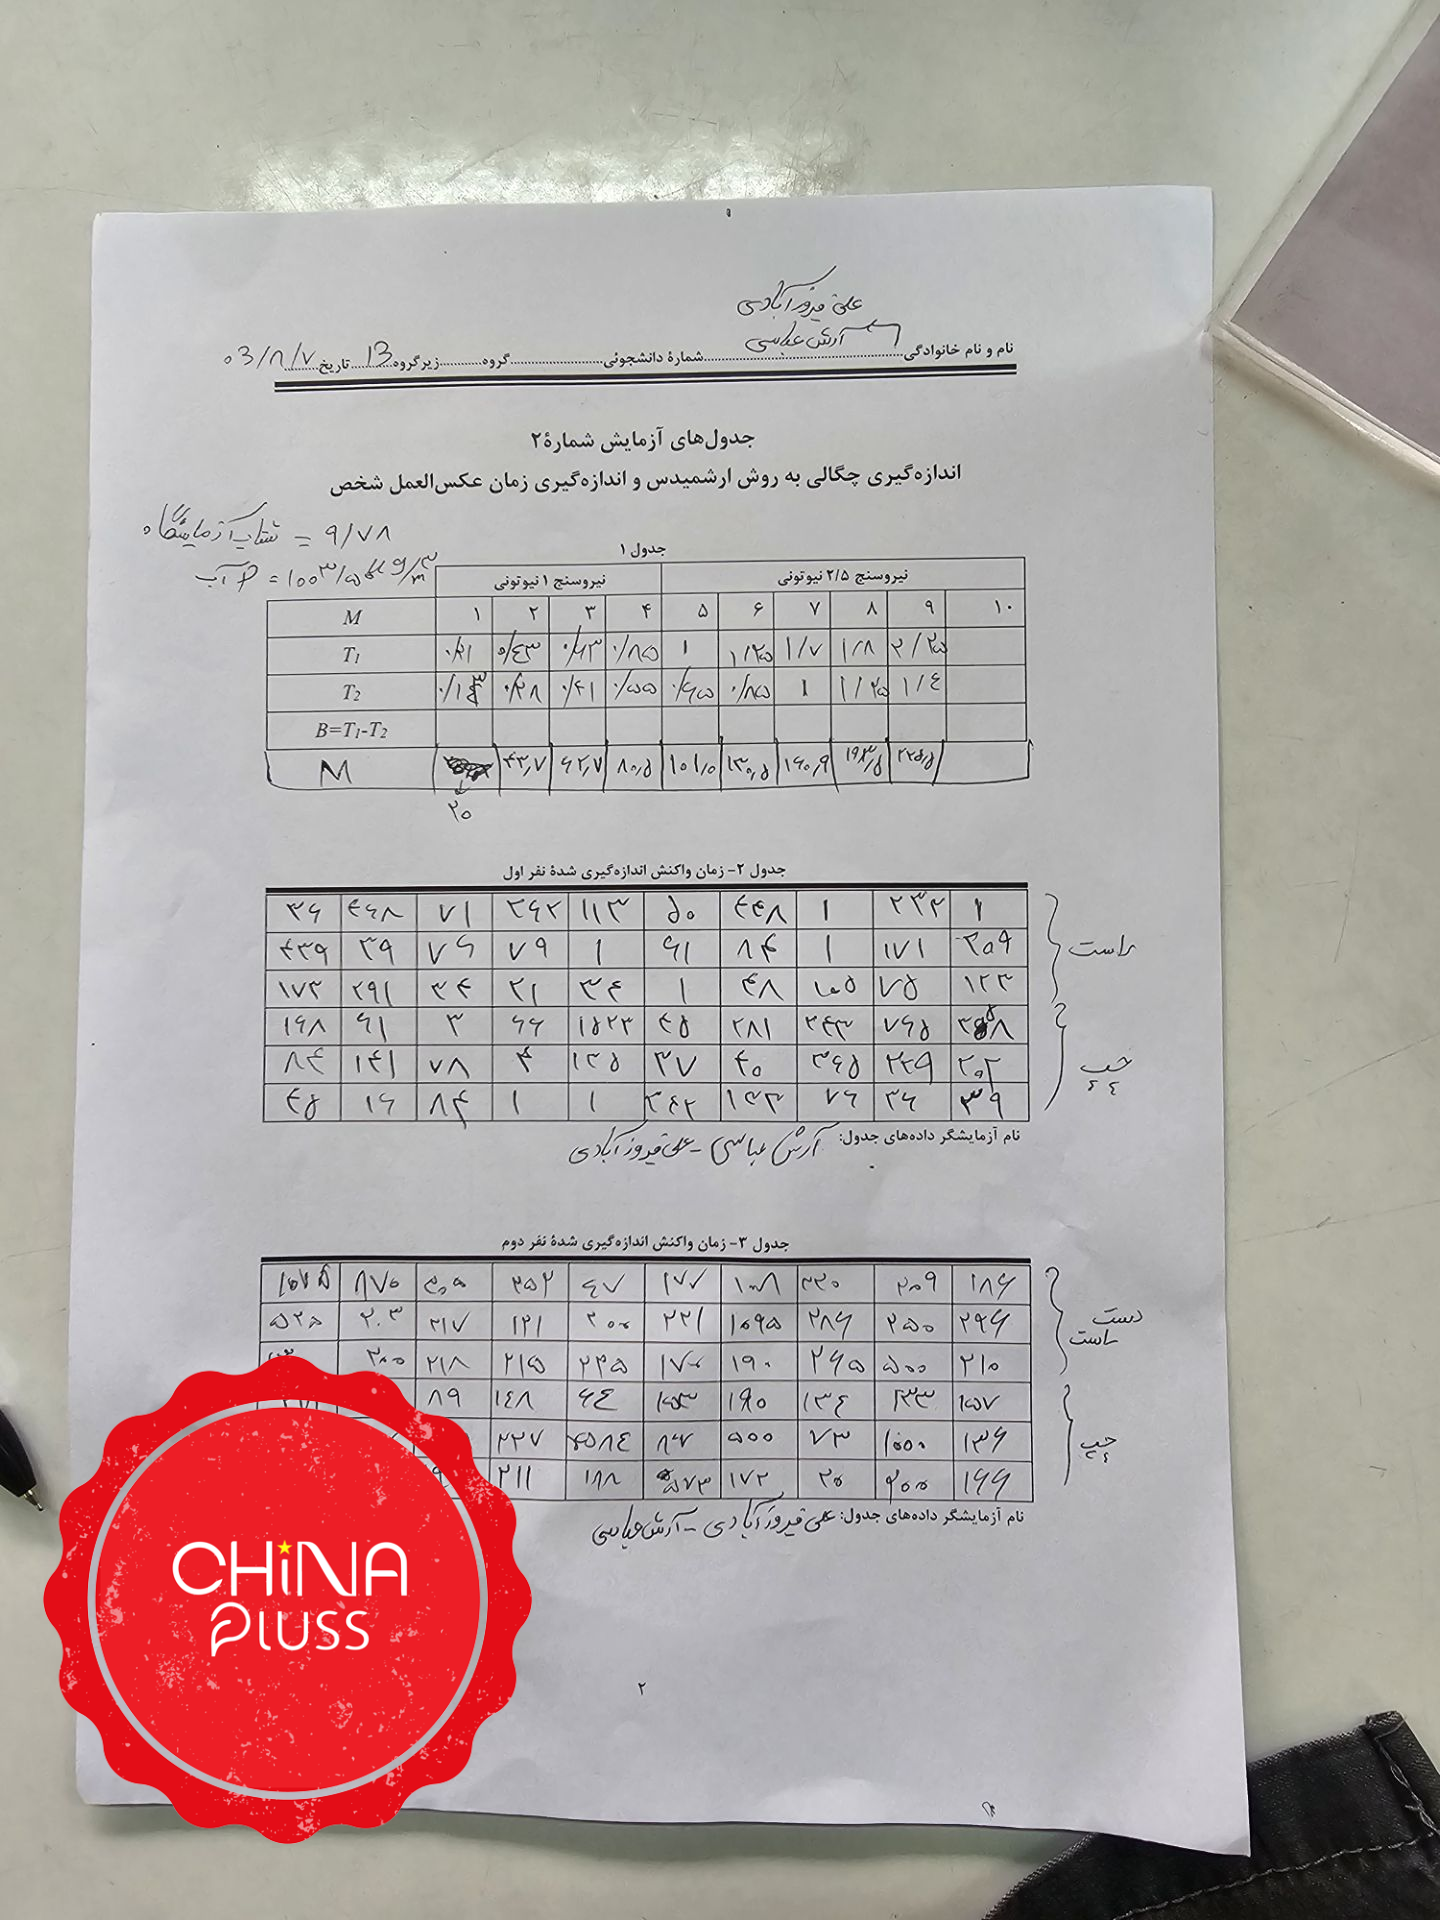 علی فیروزآبادی
نام و نام خانوادگی آرش عباسی شمارهٔ دانشجوئی گروه زیرگروه 13 تاریخ 03/8/7
جدول‌های آزمایش شمارهٔ ۲
اندازه‌گیری چگالی به روش ارشمیدس و اندازه‌گیری زمان عکس‌العمل شخص
شتاب آزمایشگاه = ۹/۷۸
جدول ۱
نیروسنج ۱ نیوتونی نیروسنج ۲/۵ نیوتونی
M ۱ ۲ ۳ ۴ ۵ ۶ ۷ ۸ ۹ ۱۰
T1 ۰/۲۱ ۰/۴۳ ۰/۶۳ ۰/۸۵ ۱ ۱/۲۵ ۱/۷ ۱/۸ ۲/۲۵
T2 ۰/۲۸ ۰/۴۱ ۰/۵۵ ۰/۶۵ ۰/۸۵ ۱ ۱/۲۵ ۱/۴
B=T1-T2
M ۴۳,۷ ۶۲,۷ ۸۰,۵ ۱۰۱,۰ ۱۳۰,۵ ۱۶۰,۹ ۱۹۳,۵ ۲۲۵,۵
۲۰
جدول ۲- زمان واکنش اندازه‌گیری شدهٔ نفر اول
۳۶ ۴۶۸ ۷۱ ۲۶۲ ۱۱۳ ۵۰ ۴۴۸ ۱ ۲۳۲ ۱
راست
۴۳۹ ۳۹ ۷۶ ۷۹ ۱ ۶۱ ۸۴ ۱ ۱۷۱ ۲۰۹
۱۷۲ ۲۹۱ ۳۴ ۲۱ ۳۴ ۱ ۴۸ ۱۰۵ ۷۵ ۱۲۳
۱۶۸ ۶۱ ۳ ۶۶ ۱۵۲۳ ۴۵ ۲۸۱ ۲۴۳ ۷۶۵
چپ
۸۴ ۱۴۱ ۷۸ ۴ ۱۲۵ ۳۷ ۴۰ ۳۶۵ ۲۲۹ ۲۰۲
۴۵ ۱۶ ۸۴ ۱ ۱ ۲۶۲ ۷۶ ۳۶ ۳۹
نام آزمایشگر داده‌های جدول: آرش عباسی - علی فیروزآبادی
جدول ۳- زمان واکنش اندازه‌گیری شدهٔ نفر دوم
۱۰۷۵ ۸۷۰ ۲۵۲ ۶۷ ۱۷۷ ۱۰۸ ۲۲۰ ۲۰۹ ۱۸۶
دست راست
۵۲۵ ۲۰۳ ۲۱۷ ۱۲۱ ۲۰۰ ۲۲۱ ۱۰۹۵ ۲۸۶ ۲۵۰ ۲۹۶
۳۰۰ ۲۱۸ ۲۱۵ ۲۳۵ ۱۷۰ ۱۹۰ ۲۶۵ ۵۰۰ ۲۱۰
۸۹ ۱۴۸ ۶۴ ۱۵۳ ۱۹۰ ۱۳۴ ۲۳۳ ۱۵۷
چپ
۲۲۷ ۸۷ ۵۰۰ ۷۳ ۱۰۰۰ ۱۳۶
۲۱۱ ۱۸۸ ۵۷۳ ۱۷۲ ۲۰ ۲۰۰ ۱۶۶
نام آزمایشگر داده‌های جدول: علی فیروزآبادی - آرش عباسی
CHiNA
Pluss
۲